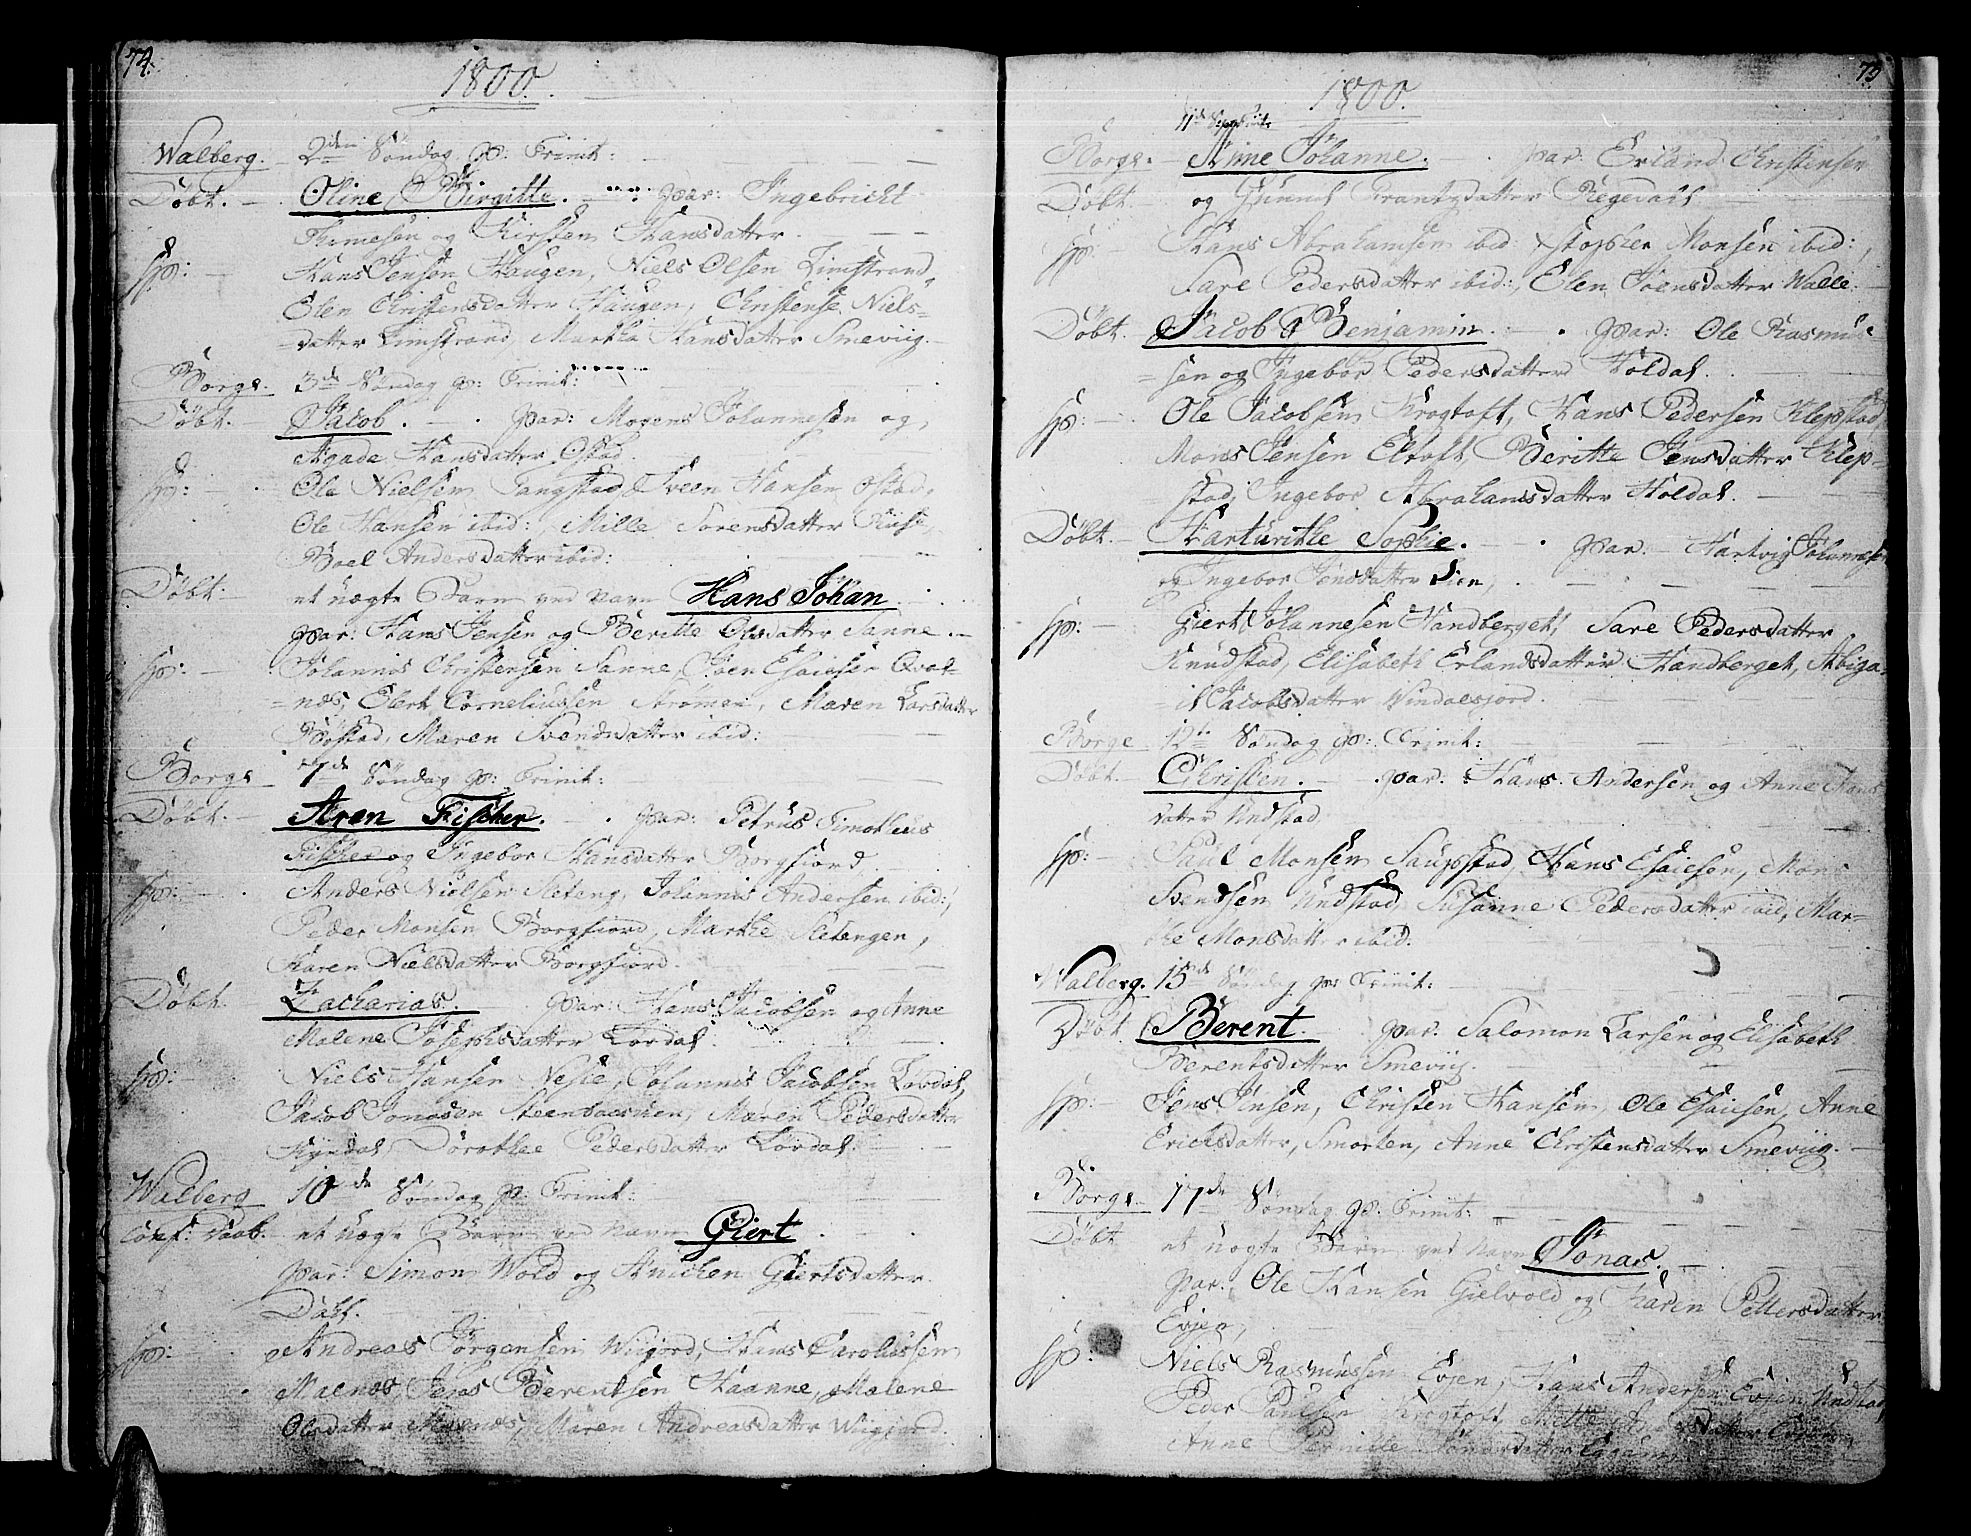 74.
1800.
Walberg. 2den Söndag p: Trinit:
Döbt. Oline Birgitte. par: Ingebricht
Thomesen og Kirsten Hansdatter.
Sp: Hans Jensen Haugen, Niels Olsen Limstrand,
Elen Christensdatter Haugen, Christense Niels-
datter Limstrand, Martha Hansdatter Smeviig.
Borge. 3de Söndag p: Trinit:
Döbt. Jacob. par: Mogens Johannesen og
Agade Hansdatter Ostad.
Sp: Ole Nielsen Tangstad, Sveen Hansen Ostad,
Ole Hansen ibid:, Mille Sorensdatter
Boel Andersdatter ibid:
Döbt. et uægte Barn ved navn Hans Johan
par: Hans Jensen og Beritte Olsdatter Sanne.
Sp: Johannis Christensen Sanne, Joen Esaiesen Qval-
næs, Elert Corneliussen Strömen, Maren Larsdatter
Böstad, Maren Svendsdatter ibid:
Borge 7de Söndag p: Trinit:
Döbt. Aren Fischer. par: Petrus Timotheus
Fischer og Ingebor Hansdatter Borgfiord
Sp: Anders Nielsen Sleteng, Johannis Andersen ibid:,
Peder Monsen Borgfiord, Marthe Sletengen,
Karen Nielsdatter Borgfiord.
Döbt. Zacharias. par: Hans Jacobsen og Anne
Malene Josephsdatter Lövdal.
Sp: Niels Hansen Vesle, Johannis Jacobsen Lövdal,
Jacob Jonasen Steenbacken, Maren Pedersdatter
Kyndal, Dorothee Pedersdatter Lövdal.
Walberg 10de Söndag p: Trinit:
conf: Daab. et uægte Barn ved navn Giert.
par: Simon Wold og Anichen Giertsdatter
Dahl.
Sp: Andreas Jörgensen Wiigjord, Hans Carolussen
Malnæs, Jens Berentsen Haanne, Malene
Olsdatter Malnæs, Maren Andreasdatter Wiigjord.
75
1800.
11te Sönd: p: Trinit:
Borge. Anne Johanne. par: Erland Christensen
Döbt. og Gunnil Frantzdatter Regedahl
Sp: Hans Abrahamsen ibid: Stopher Monsen ibid:,
Sare Pedersdatter ibid:, Elen Joensdatter Walle.
Döbt. Jacob Benjamin. par: Ole Rasmus-
sen og Ingebor Pedersdatter Holdal.
Sp: Ole Jacobsen Krogtoft, Hans Pedersen Klepstad,
Mons Jensen Eltoft, Beritte Jensdatter Klep-
stad, Ingebor Abrahamsdatter Holdal.
Döbt. Harturikke Sophie. par: Hartvig Johannesen
og Ingebor Jensdatter Lien,
Sp: Giert Johannesen Handberget, Sare Pedersdatter
Knudstad, Elisabeth Erlandsdatter Handberget, Abiga-
il Jacobsdatter Vindalsjord.
Borge 12te Söndag p: Trinit:
Döbt. Christen. par: Hans Andersen og Anne Hans
datter Undstad
Sp: Paul Monsen Saupstad, Hans Esaiesen, Mons
Svendsen Undstad, Susanne Pedersdatter ibid, Mar-
the Monsdatter ibid.
Walberg. 15de Söndag p: Trinit:
Döbt. Berent. par: Salomon Larsen og Elisabeth
Berentsdatter Smeviig.
Sp: Jens Jensen, Christen Hansen, Ole Esaiesen, Anne
Ericksdatter, Smorten, Anne Christensdatter Smeviig.
Borge. 17de Söndag p: Trinit:
Döbt et uægte Barn ved navn Jonas.
par: Ole Hansen Gielvold og Karen Pettersdatter
Evjen,
Sp: Niels Rasmussen Evjen, Hans Andersen Undstad,
Peder Paulsen Krogtoft, Mette
Anne Pernille Jonasdatter